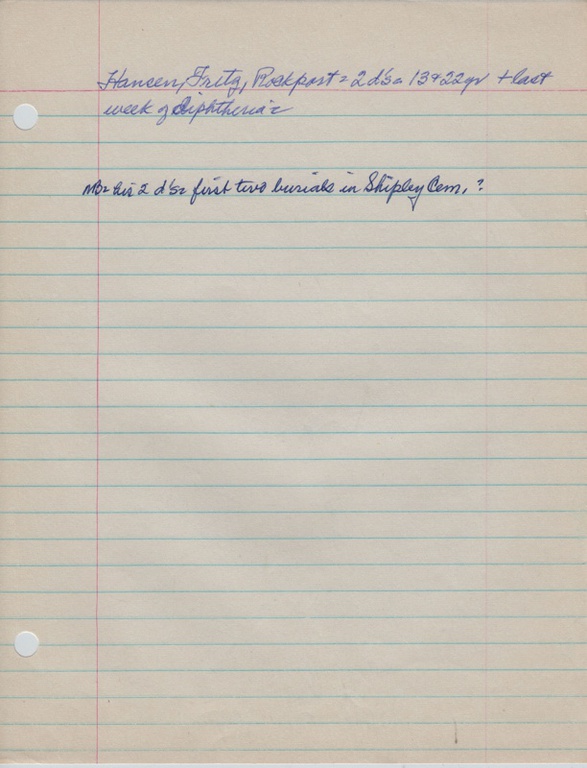 Hansen, Fritz, Rockport = 2 d's = 13 & 22 yr + last
week of diphtheria =
MB = his 2 d's = first two burials in Shipley Cem. ?